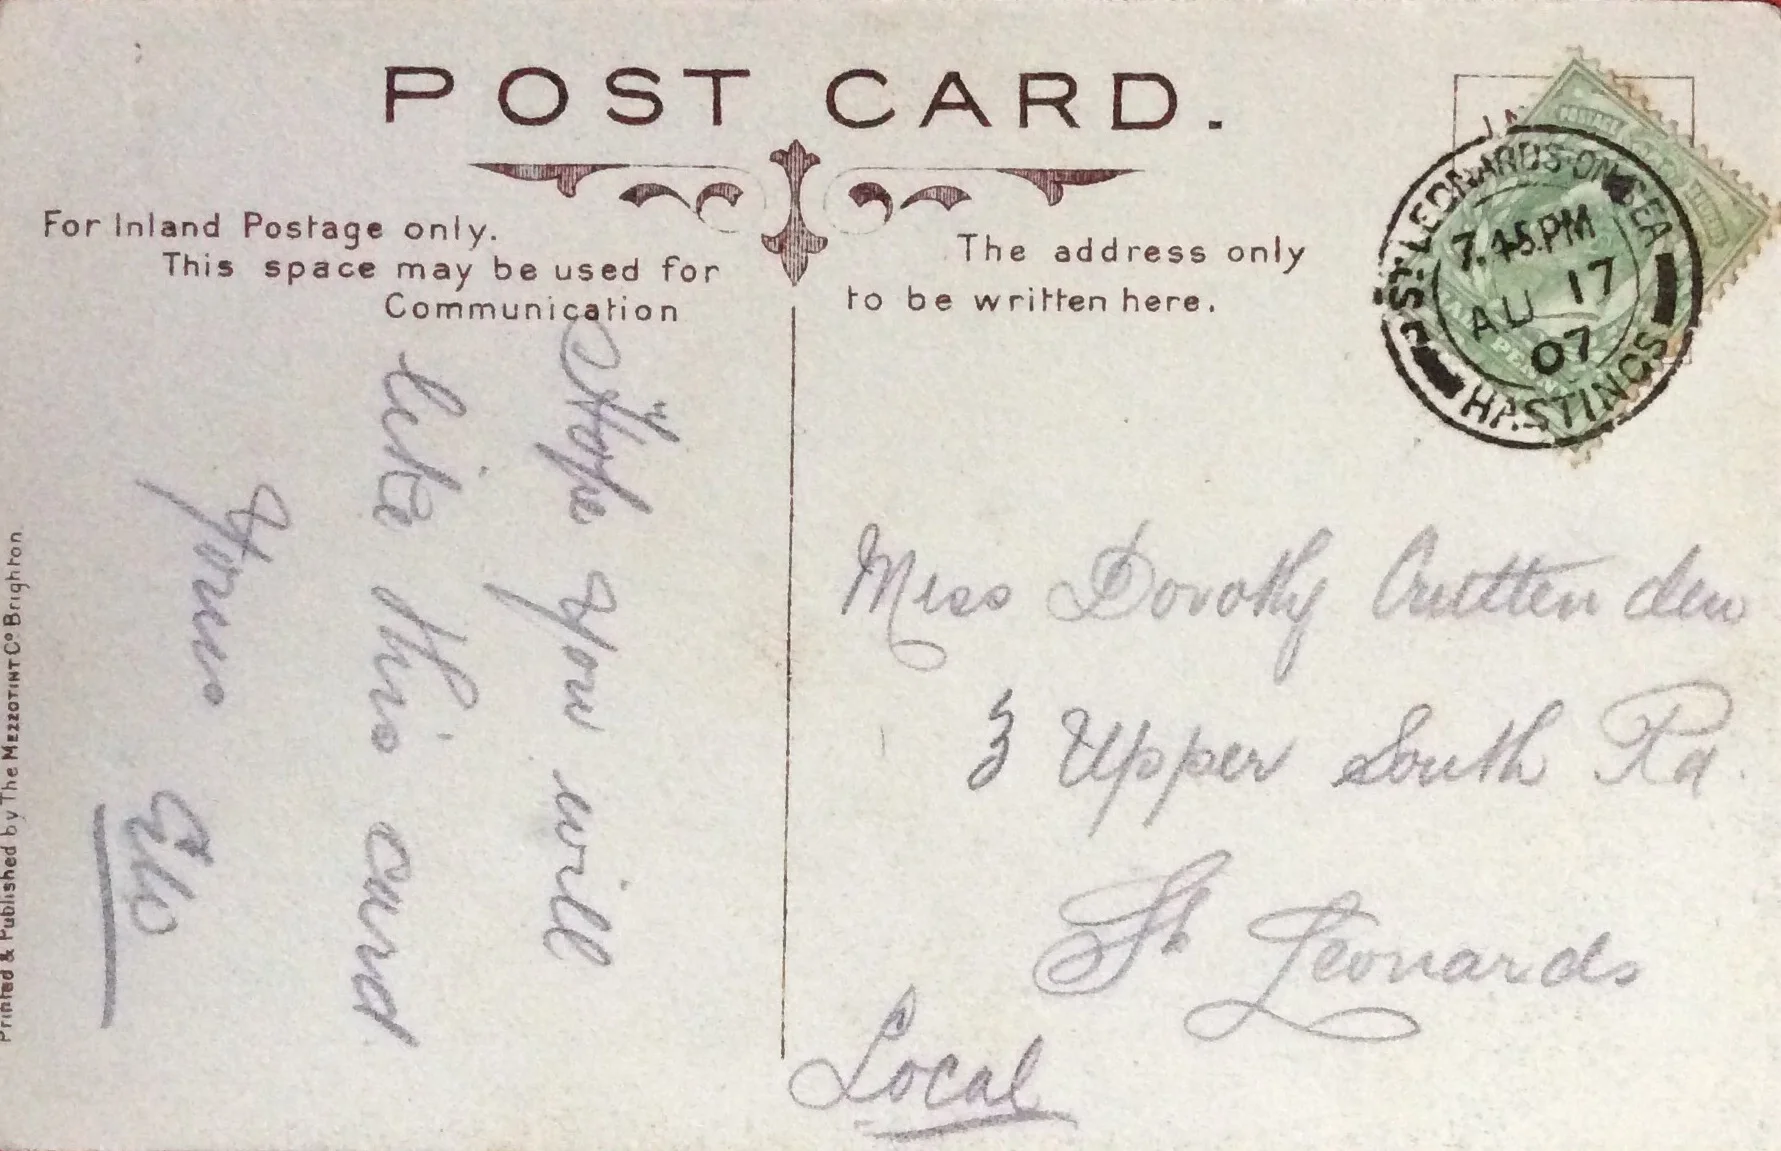 POST CARD.
For Inland Postage only.
This space may be used for
Communication
The address only
to be written here.
ST. LEONARDS-ON-SEA
7.45.PM
AU 17
07
HASTINGS
POSTAGE
Hope you will
like this card
Yours
Miss Dorothy Cruttenden
3 Upper South Rd.
St Leonards
Local
Printed & Published by The MEZZOTINT Co Brighton